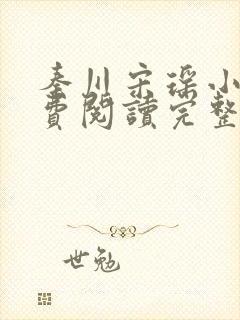 秦川宋瑤小
費閱讀完整
世勉